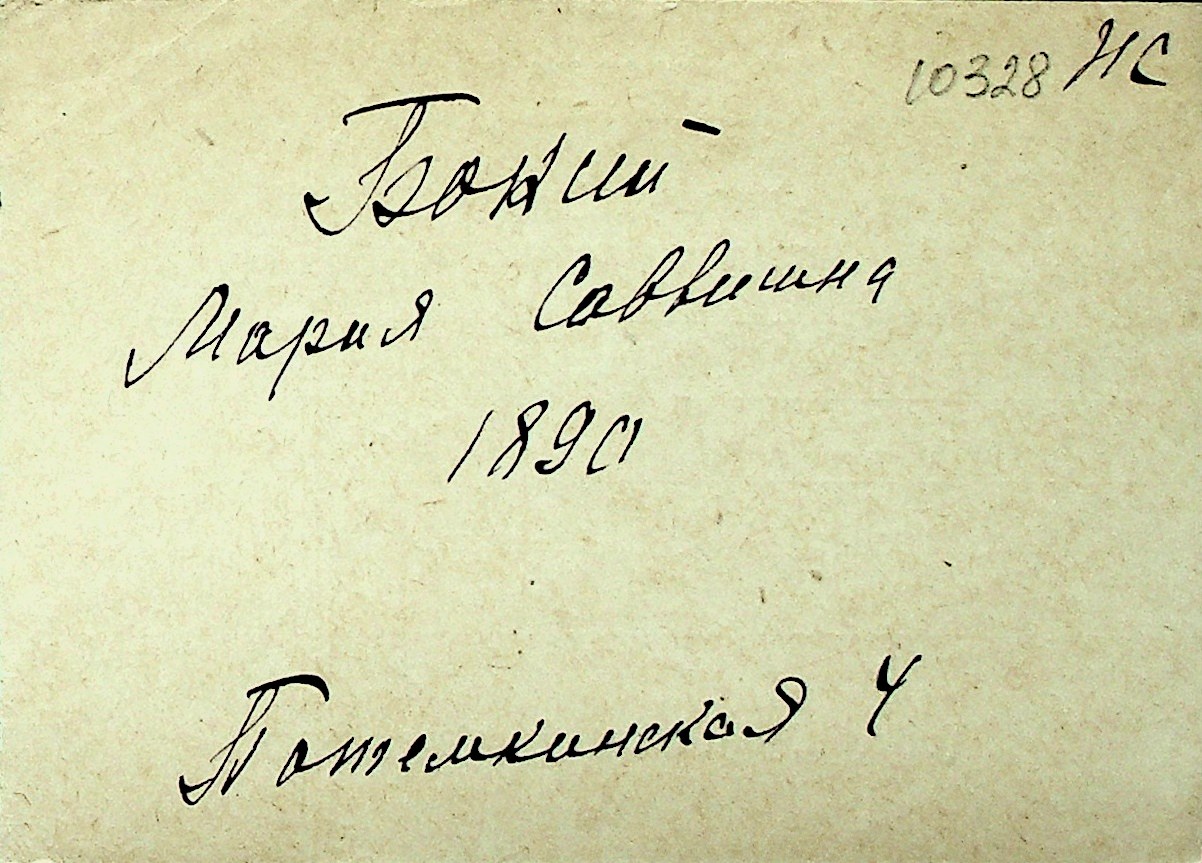 10328 НС
Бокий
Мария Саввишна
1890
Потемкинская 4